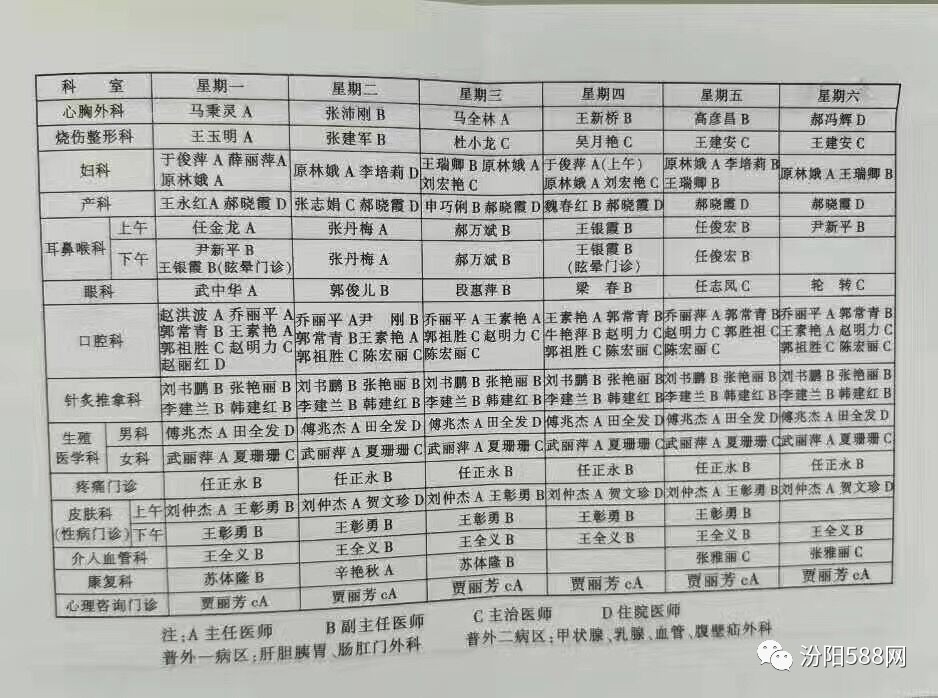 科 室 星期一 星期二 星期三 星期四 星期五 星期六
心胸外科 马秉灵 A 张沛刚 B 马全林 A 王新桥 B 高彦昌 B 郝冯辉 D
烧伤整形科 王玉明 A 张建军 B 杜小龙 C 吴月艳 C 王建安 C 王建安 C
妇科 于俊萍 A 薛丽萍A 原林娥 A 李培莉 D 王瑞卿 B 原林娥 A 于俊萍 A(上午) 原林娥 A 李培莉 B 原林娥 A 王瑞卿 B
原林娥 A 刘宏艳 C 原林娥 A 刘宏艳 C 王瑞卿 B
产科 王永红A 郝晓霞 D 张志娟 C 郝晓霞 D 申巧俐 B 郝晓霞 D 魏春红 B 郝晓霞 D 郝晓霞 D 郝晓霞 D
耳鼻喉科 上午 任金龙 A 张丹梅 A 郝万斌 B 王银霞 B 任俊宏 B 尹新平 B
下午 尹新平 B 张丹梅 A 郝万斌 B 王银霞 B 任俊宏 B
王银霞 B(眩晕门诊) (眩晕门诊)
眼科 武中华 A 郭俊儿 B 段惠萍 B 梁 春 B 任志凤 C 轮 转 C
口腔科 赵洪波 A 乔丽平 A 乔丽平 A尹 刚 B 乔丽平 A 王素艳 A 王素艳 A 郭常青 B 乔丽萍 A 郭常青 B 乔丽平 A 郭常青 B
郭常青 B 王素艳 A 郭常青 B王素艳 A 郭祖胜 C 赵明力 C 牛艳萍 B 赵明力 C 赵明力 C 郭胜祖 C 王素艳 A 赵明力 C
郭祖胜 C 赵明力 C 郭祖胜 C 陈宏丽 C 陈宏丽 C 郭祖胜 C 陈宏丽 C 陈宏丽 C 郭祖胜 C 陈宏丽 C
赵丽红 D
针灸推拿科 刘书鹏 B 张艳丽 B 刘书鹏 B 张艳丽 B 刘书鹏 B 张艳丽 B 刘书鹏 B 张艳丽 B 刘书鹏 B 张艳丽 B 刘书鹏 B 张艳丽 B
李建兰 B 韩建红 B 李建兰 B 韩建红 B 李建兰 B 韩建红 B 李建兰 B 韩建红 B 李建兰 B 韩建红 B 李建兰 B 韩建红 B
生殖医学科 男科 傅兆杰 A 田全发 D 傅兆杰 A 田全发 D 傅兆杰 A 田全发 D 傅兆杰 A 田全发 D 傅兆杰 A 田全发 D 傅兆杰 A 田全发 D
女科 武丽萍 A 夏珊珊 C 武丽萍 A 夏珊珊 C 武丽萍 A 夏珊珊 C 武丽萍 A 夏珊珊 C 武丽萍 A 夏珊珊 C 武丽萍 A 夏珊珊 C
疼痛门诊 任正永 B 任正永 B 任正永 B 任正永 B 任正永 B 任正永 B
皮肤科(性病门诊) 上午 刘仲杰 A 王彰勇 B 刘仲杰 A 贺文珍 D 刘仲杰 A 王彰勇 B 刘仲杰 A 贺文珍 D 刘仲杰 A 王彰勇 B 刘仲杰 A 贺文珍 D
下午 王彰勇 B 王彰勇 B 王彰勇 B 王彰勇 B 王彰勇 B
介入血管科 王全义 B 王全义 B 王全义 B 王全义 B 王全义 B 王全义 B
康复科 苏体隆 B 辛艳秋 A 苏体隆 B 张雅丽 C 张雅丽 C
心理咨询门诊 贾丽芳 cA 贾丽芳 cA 贾丽芳 cA 贾丽芳 cA 贾丽芳 cA 贾丽芳 cA
注;A 主任医师 B 副主任医师 C 主治医师 D 住院医师
普外一病区;肝胆胰胃、肠肛门外科 普外二病区;甲状腺、乳腺、血管、腹壁疝外科
汾阳588网